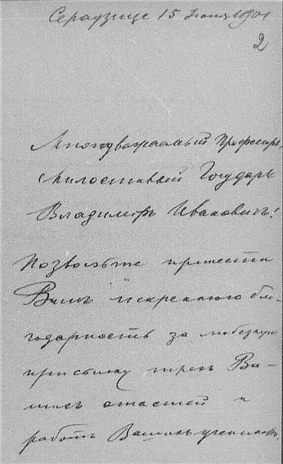 Серадзице 15 Июня 1901
2
Многоуважаемый Профессоръ,
Милостивый Государь
Владиміръ Ивановичъ!
Позвольте принести
Вамъ искреннюю бла-
годарность за любезную
присылку трехъ Ва-
шихъ статей и
работъ Вашихъ учениковъ,